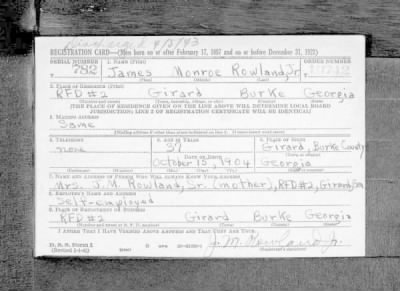 Discharged 4/3/43
REGISTRATION CARD—(Men born on or after February 17, 1897 and on or before December 31, 1921)
SERIAL NUMBER 1. NAME (Print) ORDER NUMBER
782 James Monroe Rowland, Jr.
2. PLACE OF RESIDENCE (Print)
RFD #2 Girard Burke Georgia
(Number and street) (Town, township, village, or city) (County) (State)
[THE PLACE OF RESIDENCE GIVEN ON THE LINE ABOVE WILL DETERMINE LOCAL BOARD
JURISDICTION; LINE 2 OF REGISTRATION CERTIFICATE WILL BE IDENTICAL]
3. MAILING ADDRESS
Same
[Mailing address if other than place indicated on line 2. If same insert word same]
4. TELEPHONE 5. AGE IN YEARS 6. PLACE OF BIRTH
none 37 Girard, Burke County
DATE OF BIRTH
October 15, 1904 Georgia
7. NAME AND ADDRESS OF PERSON WHO WILL ALWAYS KNOW YOUR ADDRESS
Mrs. J. M. Rowland, Sr. (mother), RFD #2, Girard, Ga.
8. EMPLOYER'S NAME AND ADDRESS
Self-employed
9. PLACE OF EMPLOYMENT OR BUSINESS
RFD #2 Girard Burke Georgia
(Number and street or R. F. D. number) (Town) (County) (State)
I AFFIRM THAT I HAVE VERIFIED ABOVE ANSWERS AND THAT THEY ARE TRUE.
D. S. S. Form 1
J. M. Rowland Jr.
(Registrant's signature)